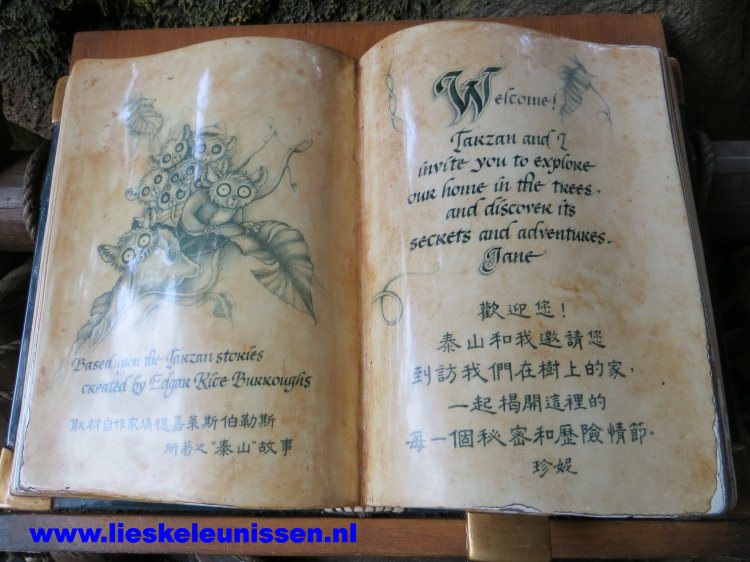 Based upon the Tarzan stories
created by Edgar Rice Burroughs
取材自作家埃德嘉萊斯伯勒斯
所著之"泰山"故事
Welcome!
Tarzan and I
invite you to explore
our home in the trees.
and discover its
secrets and adventures.
Jane
歡迎您!
泰山和我邀請您
到訪我們在樹上的家,
一起揭開這裡的
每一個秘密和歷險情節。
珍妮
www.lieskeleunissen.nl